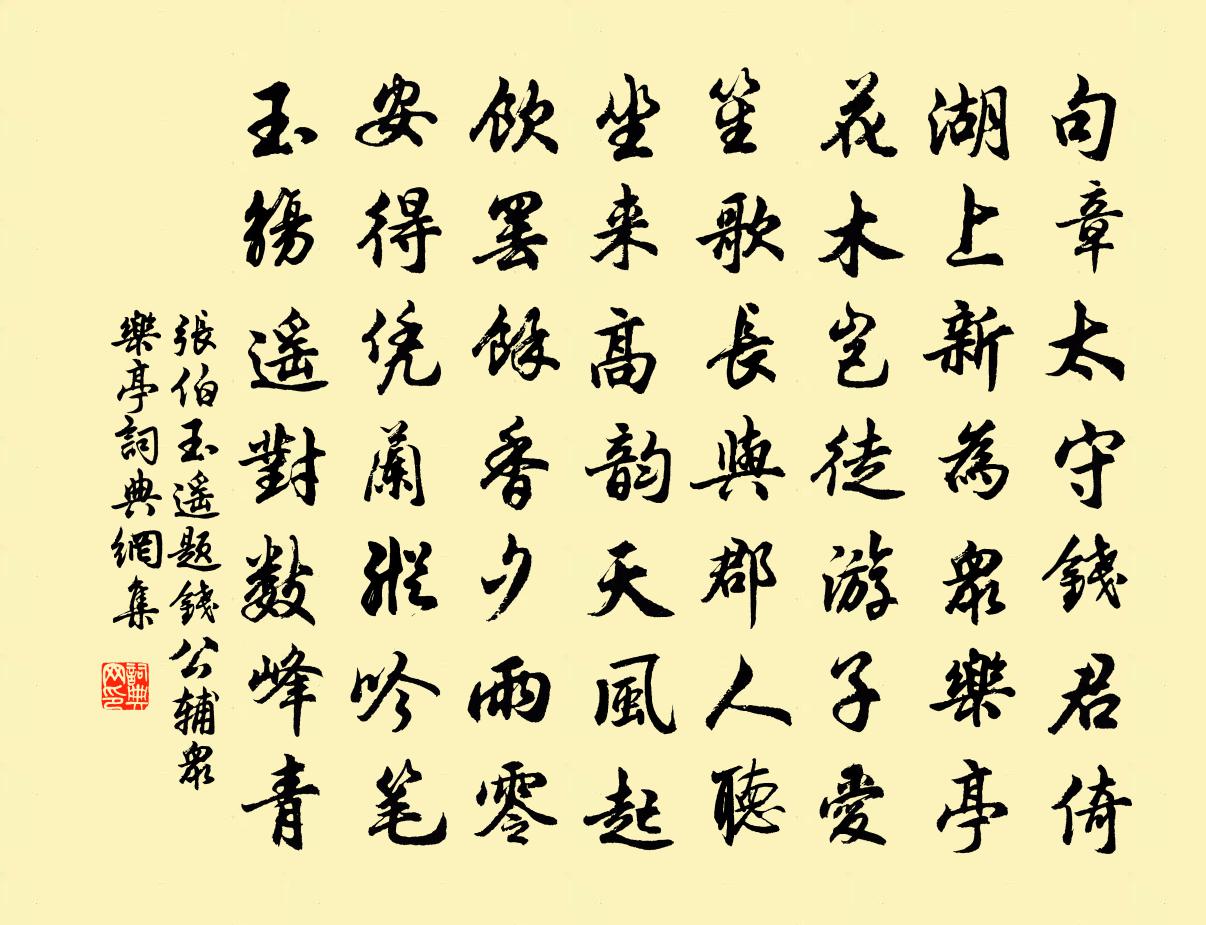 句章太守錢君倚
湖上新為眾樂亭
花木豈徒游子愛
笙歌長與郡人聽
坐来高韵天風起
飲罷餘香夕雨零
安得凭蘭縱吟笔
玉觴遥對數峰青
張伯玉遥题錢公輔眾
樂亭詞典網集
詞典网印